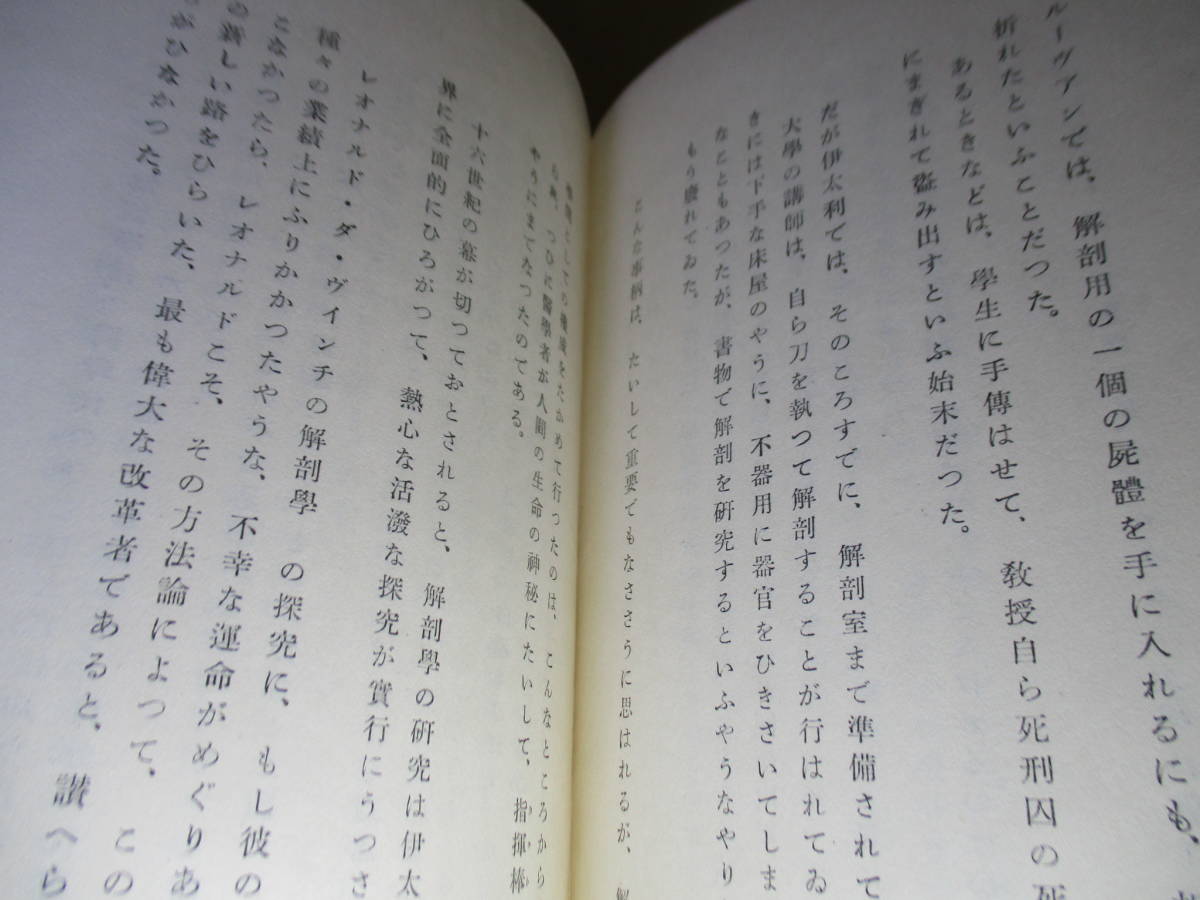 ルーヴアンでは、解剖用の一個の屍體を手に入れるにも、
折れたといふことだつた。
あるときなどは、學生に手傳はせて、教授自ら死刑囚の死
にまぎれて盗み出すといふ始末だつた。
だが伊太利では、そのころすでに、解剖室まで準備されて
大學の講師は、自ら刀を執つて解剖することが行はれてゐ
きには下手な床屋のやうに、不器用に器官をひきさいてしま
なこともあつたが、書物で解剖を研究するといふやうなやり
もう廢れてゐた。
こんな事柄は、たいして重要でもなささうに思はれるが、解
としての をたかめて行つたのは、こんなところから
つひに醫學者が人間の生命の神秘にたいして、指揮棒
やうにまでなつたのである。
十六世紀の幕が切つておとされると、解剖學の研究は伊太
界に全面的にひろがつて、熱心な活潑な探究が實行にうつさ
レオナルド・ダ・ヴインチの解剖學の探究に、もし彼の
種々の業績上にふりかかつたやうな、不幸な運命がめぐりあ
こなかつたら、レオナルドこそ、その方法論によつて、この
の新しい路をひらいた、最も偉大な改革者であると、讃へら
がひなかつた。